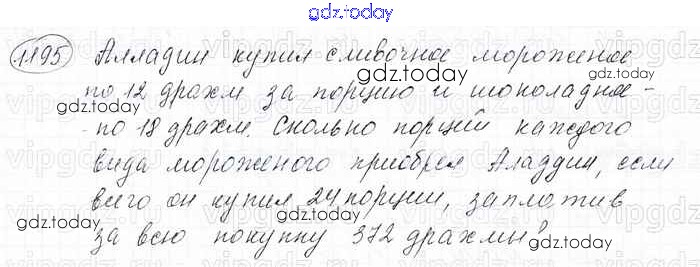 gdz.today
1195 Алладин купил сливочное мороженое
по 12 драхм за порцию и шоколадное -
- по 18 драхм. Сколько порций каждого
вида мороженого приобрел Аладдин, если
всего он купил 24 порции, заплатив
за всю покупку 372 драхмы?
gdz.today
gdz.today
gdz.today
gdz.today
gdz.today
gdz.today
gdz.today
gdz.today